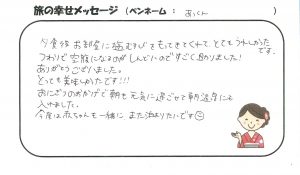 旅の幸せメッセージ（ペンネーム：あっくん）
夕食後お部屋に塩むすびをもってきてくれて、とてもうれしかったです。
つわりで空腹になるのがしんどいのですごく助かりました！
ありがとうございました。
とっても美味しかったです!!!
おにぎりのおかげで朝も元気に過ごせて朝温泉にも
入れました。
今度は赤ちゃんも一緒に また泊まりたいです☺